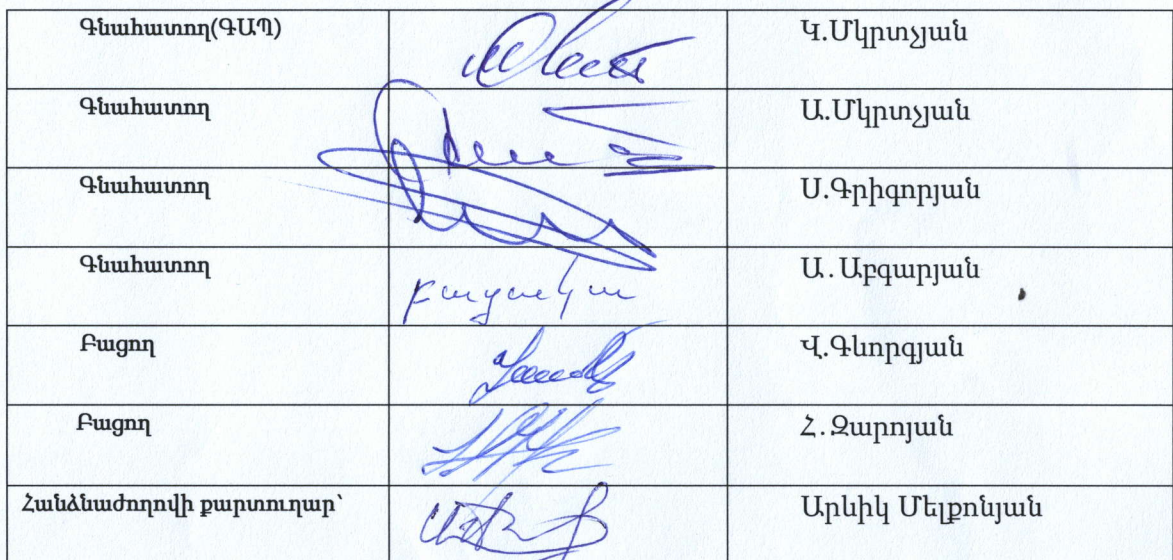 Գնահատող(ԳԱՊ) Գ.Մկրտչյան
Գնահատող Ա.Մկրտչյան
Գնահատող Ս.Գրիգորյան
Գնահատող բացակա Ա.Աբգարյան
Բացող Վ.Գևորգյան
Բացող Հ.Զարոյան
Հանձնաժողովի քարտուղար՝ Արևիկ Մելքոնյան